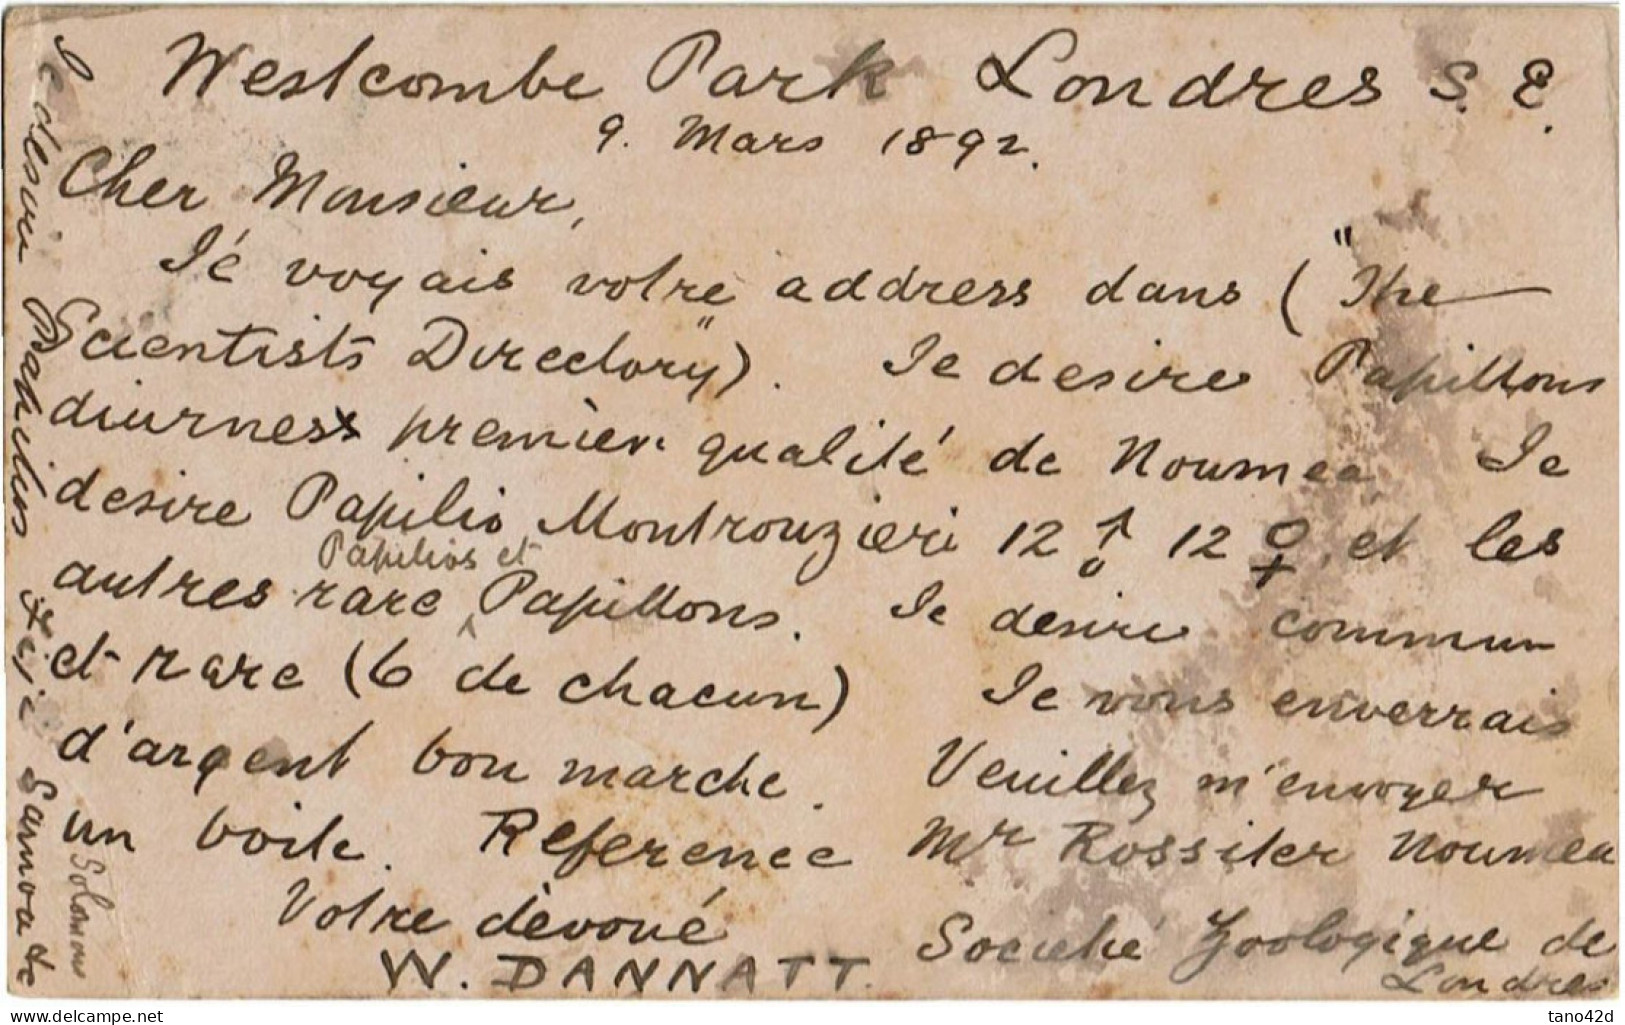 Westcombe Park Londres S. E.
9. Mars 1892.
Cher Monsieur,
Jé voyais votre address dans ("The
Scientists Directory"). Je desire Papillons
diurness premièr qualité de Noumea Je
desire Papilio Montrouzieri 12 ♂ 12 ♀, et les
Papilios et
autres rare ^ Papillons. Je desire commun
et rare (6 de chacun) Je vous enverrais
d'argent bon marche. Veuillez m'envoyer
un boite. Reference Mr Rossiter Noumea
Votre dèvoué Societé Zoologique de
Londres
W. DANNATT.
Je desire Papilios Fiji Samoa &c
Solomons
www.delcampe.net tano42d